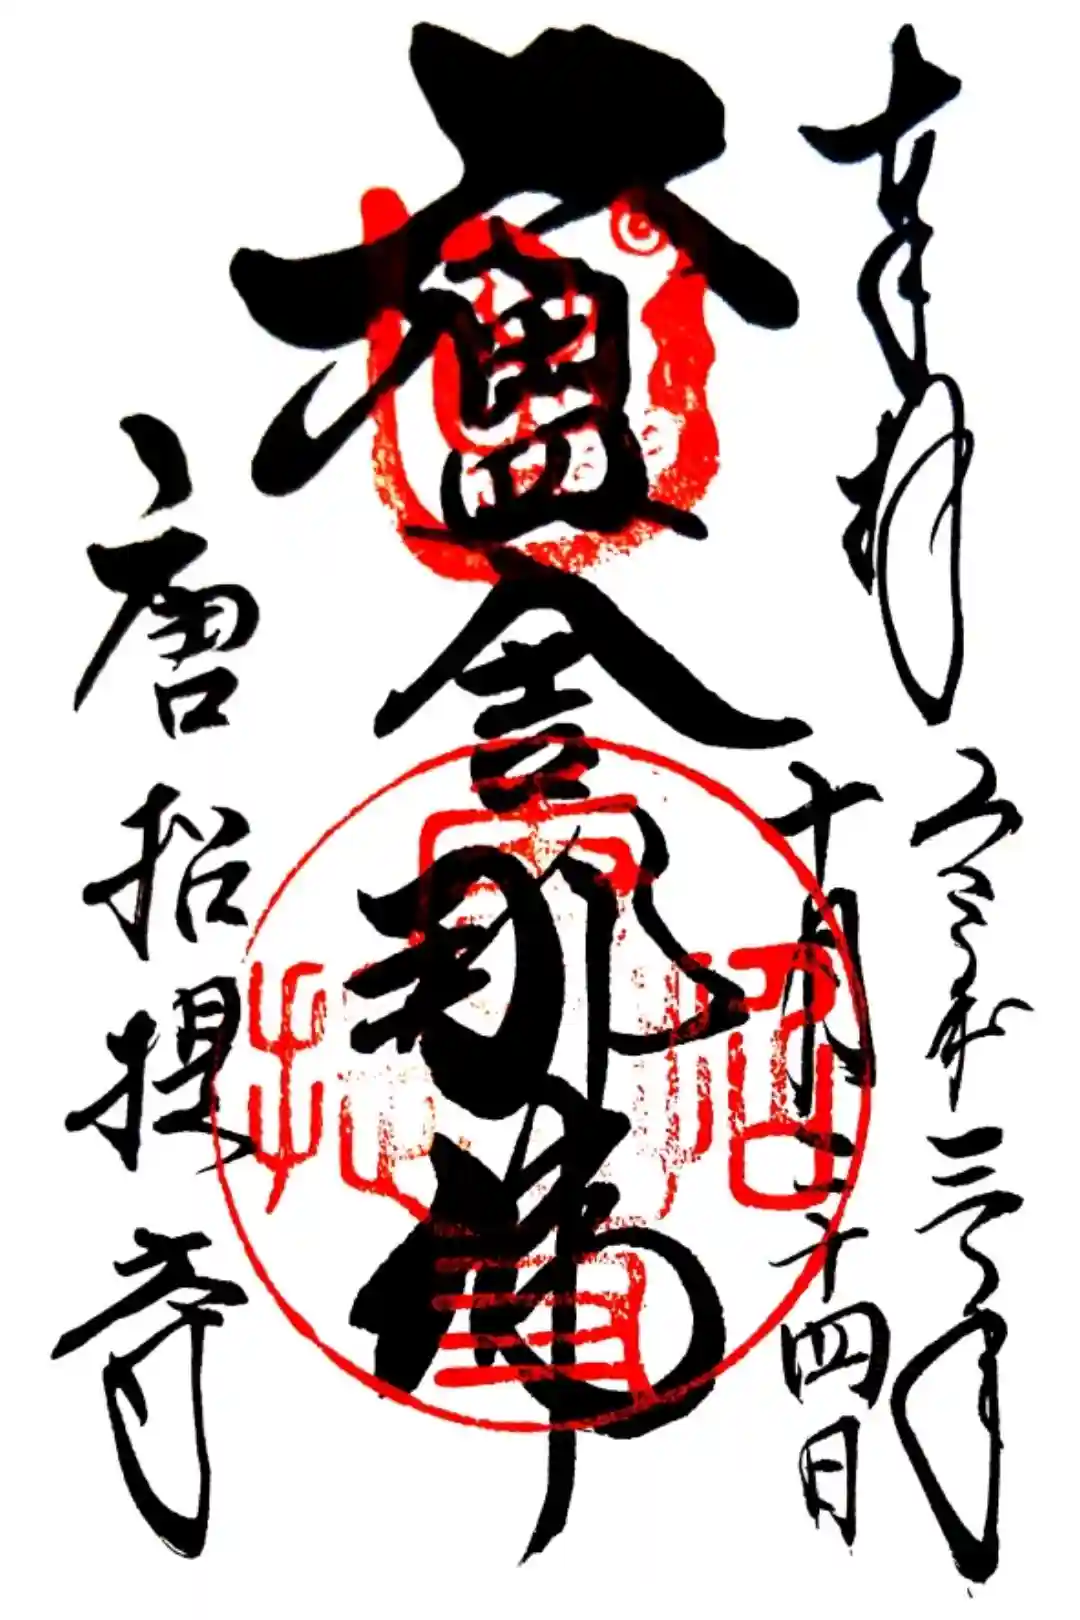 奉拝
令和三年
十月二十四日
盧舎那佛
唐招提寺